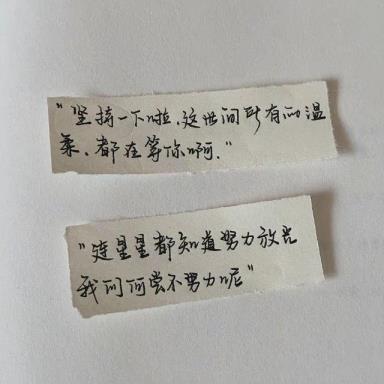 "坚持一下啦,这世间所有的温
柔,都在等你啊."
"连星星都知道努力放光
我们何尝不努力呢"